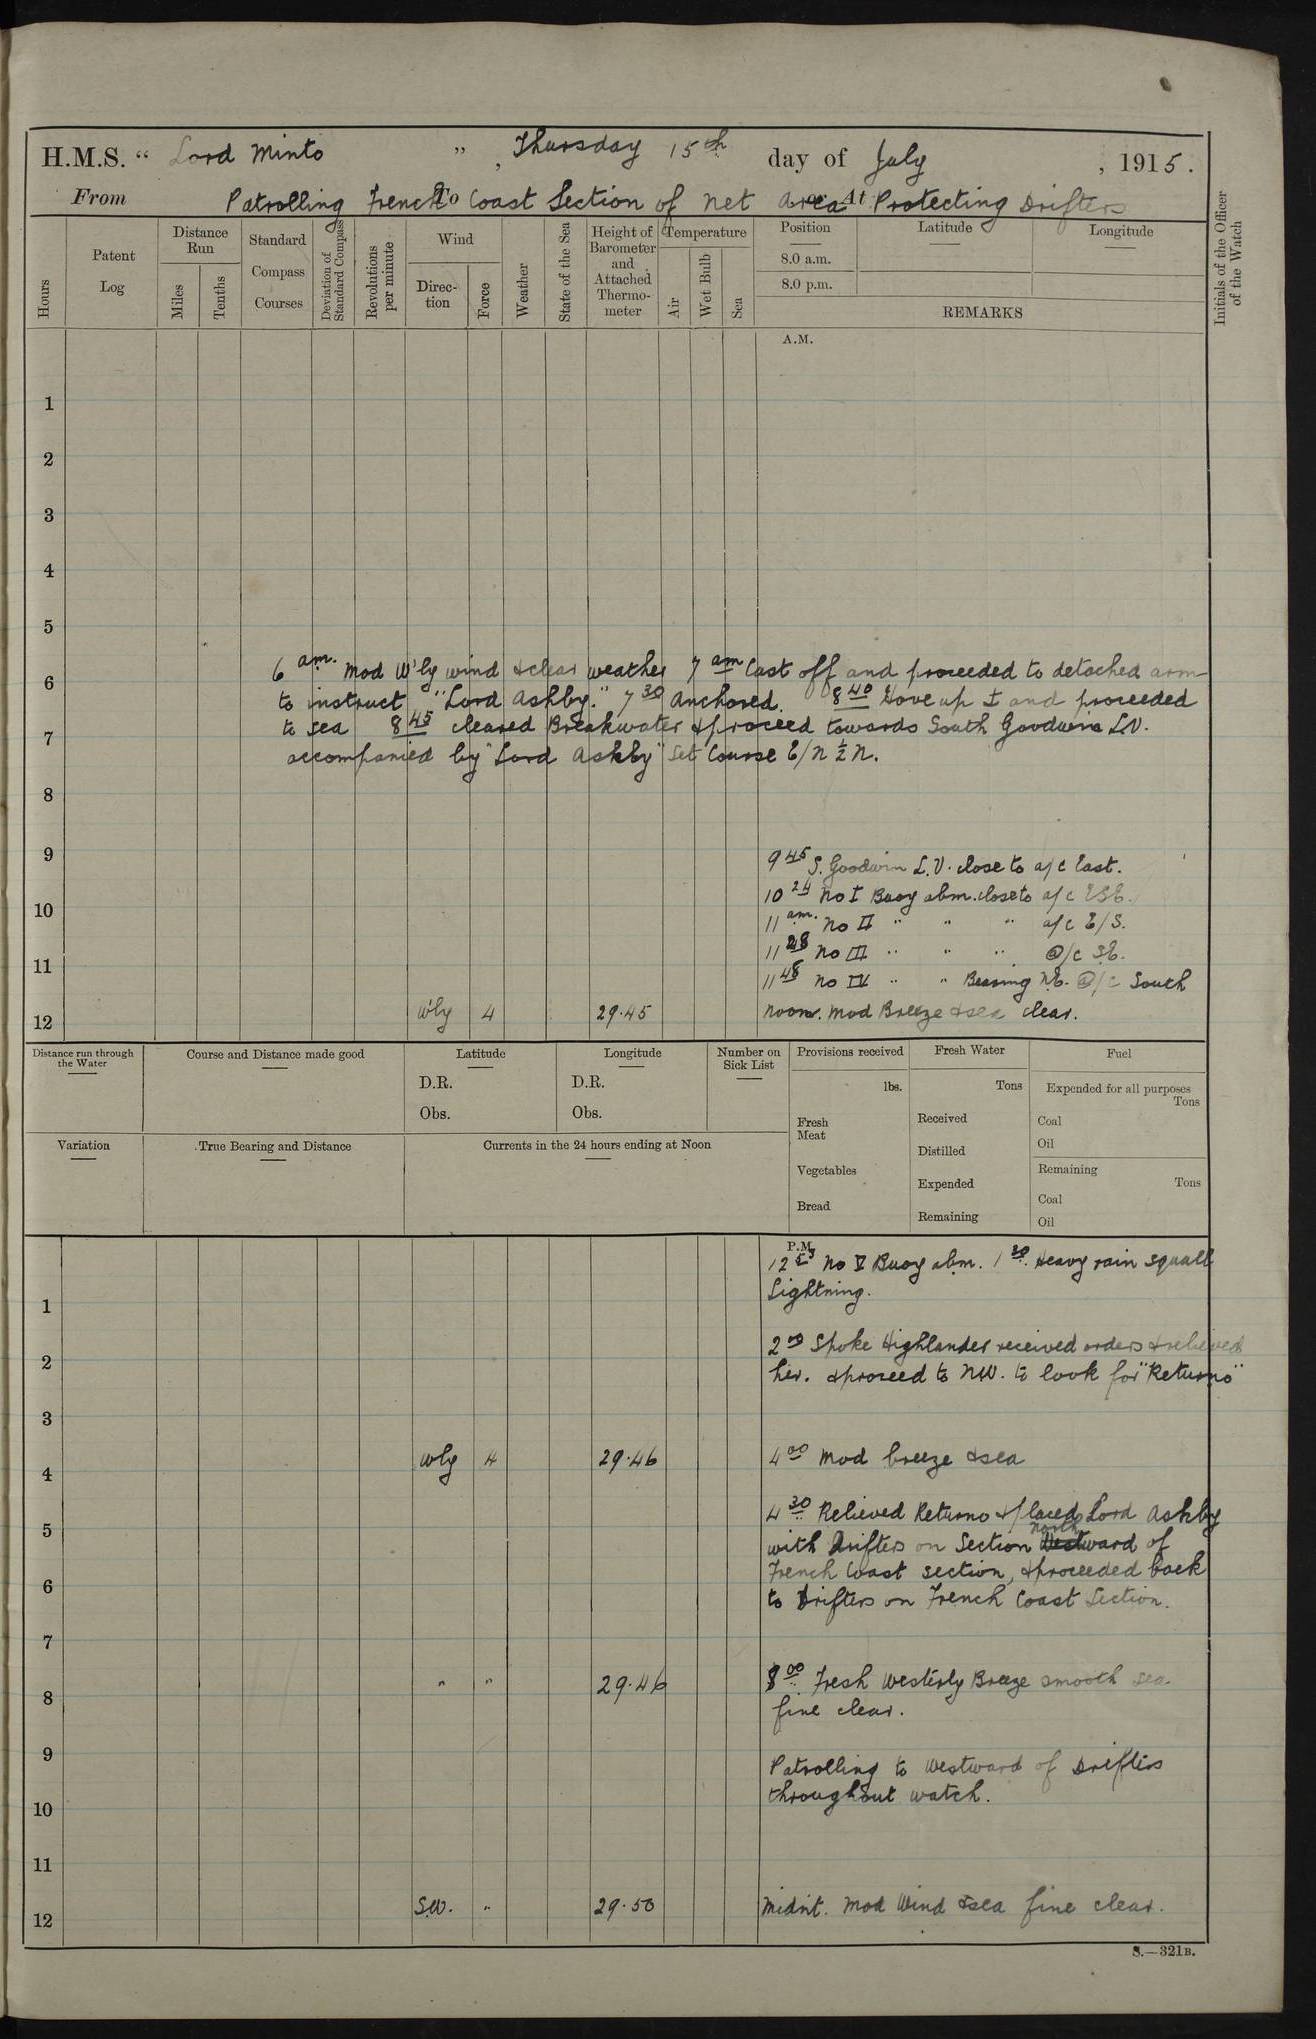 H.M.S. “ Lord Minto ” , Thursday 15th day of July , 1915.
From Patrolling French To Coast Section of net area or At Protecting Drifters
Hours
Patent Log
Distance Run
Miles
Tenths
Standard Compass Courses
Deviation of Standard Compass
Revolutions per minute
Wind
Direc-tion
Force
Weather
State of the Sea
Height of Barometer and Attached Thermo-meter
Temperature
Air
Wet Bulb
Sea
Position
8.0 a.m.
8.0 p.m.
Latitude
Longitude
REMARKS
Initials of the Officer of the Watch
A.M.
1
2
3
4
5
6 am. Mod W'ly wind & clear weather 7 am Cast off and proceeded to detached arm
6
to instruct "Lord Ashby." 7 30 Anchored. 8 40 Hove up & and proceeded
to sea 8 45 cleared Breakwater & proceed towards South Goodwins L.V.
7
accompanied by "Lord Ashby" Set Course E/N ½ N.
8
9
9 45 S. Goodwin L.V. close to a/c East.
10 24 No I Buoy abm. close to a/c ESE.
10
11 am. No II " " " a/c E/S.
11 28 No III " " " @/c SE.
11
11 48 No IV " " Bearing NE. @/c South
12 W'ly 4 29.45 noon. Mod Breeze & sea clear.
Distance run through the Water
Course and Distance made good
Latitude
D.R.
Obs.
Longitude
D.R.
Obs.
Number on Sick List
Provisions received
lbs.
Fresh Meat
Vegetables
Bread
Fresh Water
Tons
Received
Distilled
Expended
Remaining
Fuel
Expended for all purposes
Tons
Coal
Oil
Remaining
Tons
Coal
Oil
Variation
True Bearing and Distance
Currents in the 24 hours ending at Noon
P.M.
12 53 No V Buoy abm. 1 30. Heavy rain squall
Lightning.
1
2 00 Spoke Highlander received orders & relieved
2
her. & proceed to NW. to look for "Returno"
3
4 wly 4 29.46 4 00 Mod breeze & sea
4 30 Relieved Returno & placed Lord Ashby
5
with Drifters on Section Northward of
French Coast section, & proceeded back
6
to Drifters on French Coast Section.
7
8 " " 29.46 8 00 Fresh Westerly Breeze smooth sea
fine clear.
9
Patrolling to Westward of Drifters
throughout watch.
10
11
12 S.W. " 29.50 Midnt. Mod Wind & sea fine clear.
S.—321B.